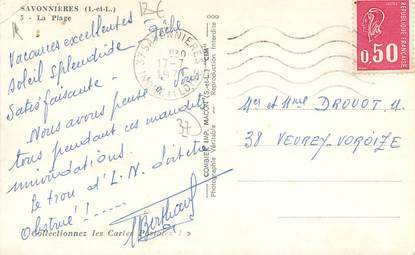 SAVONNIÈRES (I.-et-L.)
5 - La Plage
Vacances excellentes
soleil splendide Pêche
Satisfaisante -
Nous avons pensé Vous
tous pendant ces maudites
innondations.
Le trou d'L.N. doit être
obstrué ! .....
Berthaud
Collectionnez les Cartes Postales ! »
COMBIER IMP. MACON (S.-et-L.) "CIM"
Photographie Véritable - Reproduction Interdite
37 SAVONNIERES
17-7
REPUBLIQUE FRANCAISE
0,50
POSTES
Mr et Mme DROUOT M.
38 VEUREY-VOROIZE
37